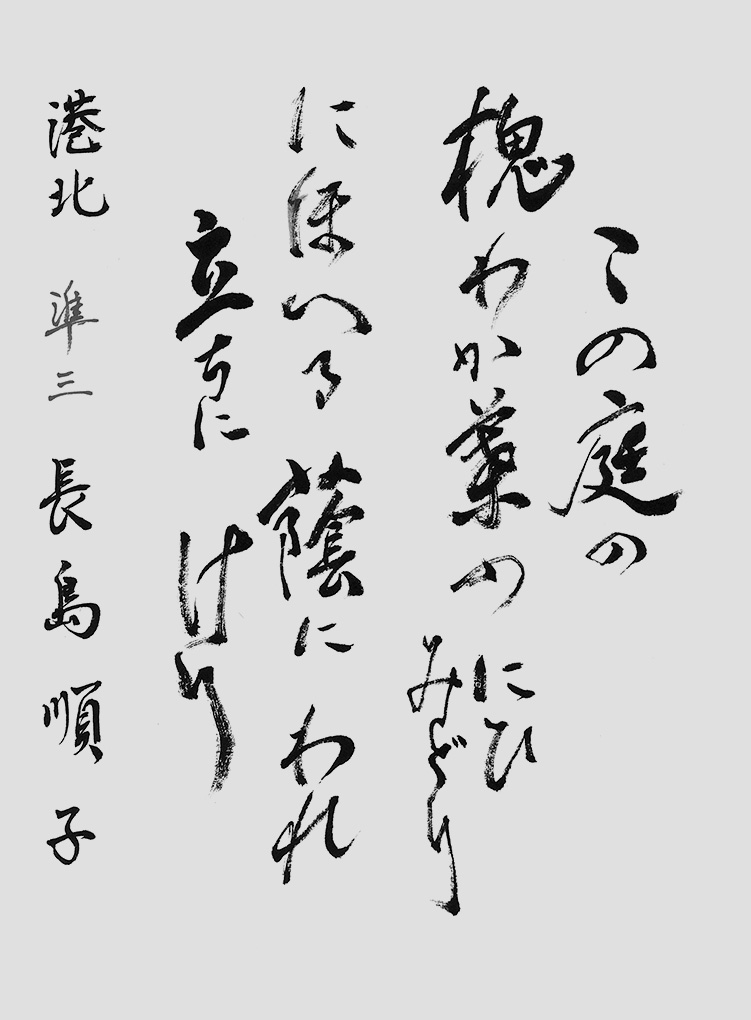 この庭の
槐わか葉の にひ
みどり
にほへる 蔭に われ
立ちに けり
港北 準三 長島順子